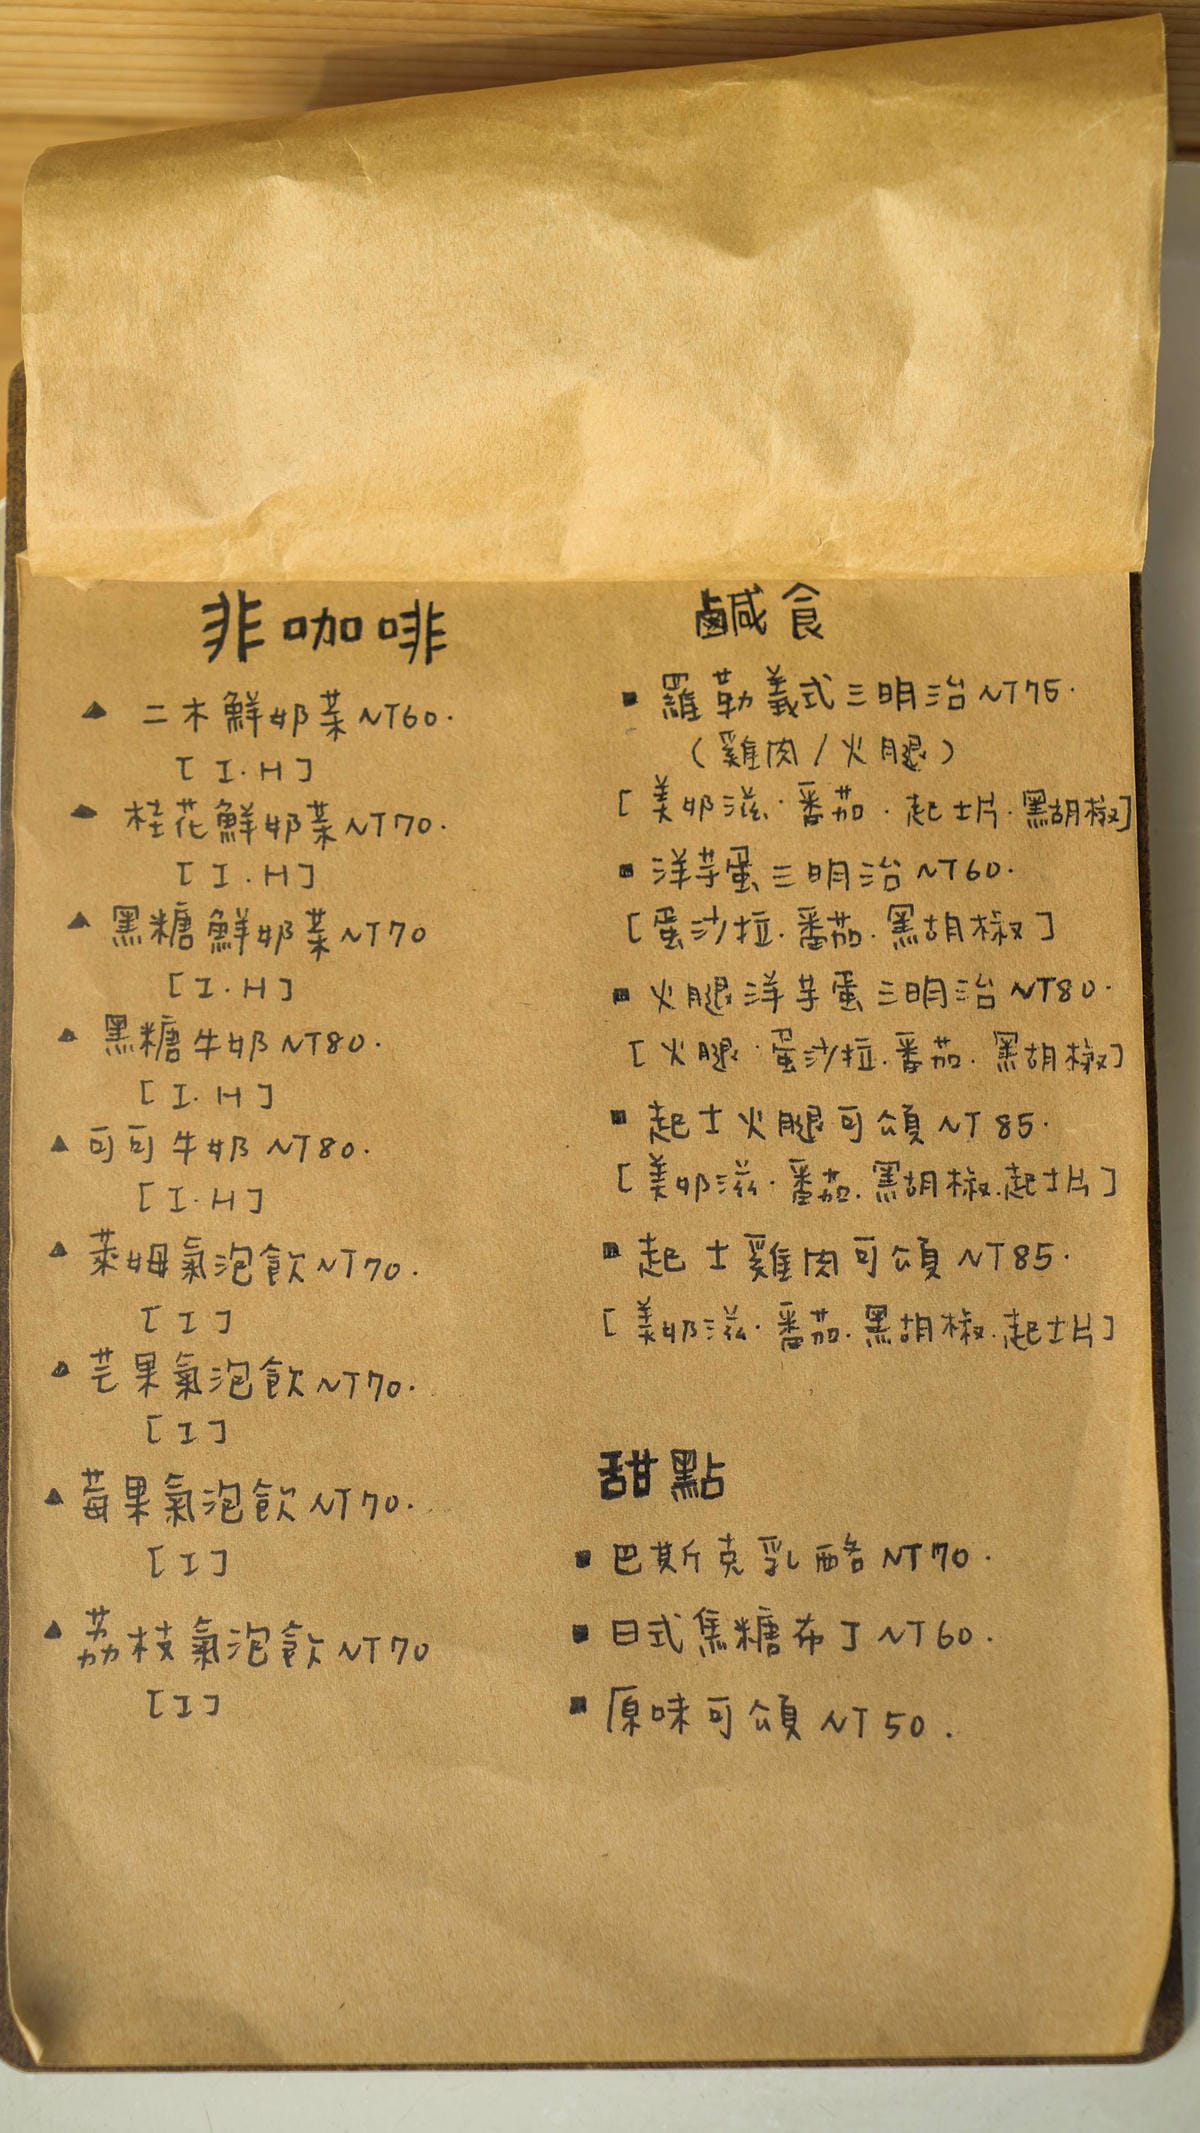 非咖啡
▲ 二木鮮奶菜 NT60.
[I.H]
▲ 桂花鮮奶菜 NT70.
[I.H]
▲ 黑糖鮮奶菜 NT70
[I.H]
▲ 黑糖牛奶 NT80.
[I.H]
▲ 可可牛奶 NT80.
[I.H]
▲ 萊姆氣泡飲 NT70.
[I]
▲ 芒果氣泡飲 NT70.
[I]
▲ 莓果氣泡飲 NT70.
[I]
▲ 荔枝氣泡飲 NT70
[I]
鹹食
■ 羅勒義式三明治 NT75.
(雞肉/火腿)
[美奶滋.番茄.起士片.黑胡椒]
■ 洋芋蛋三明治 NT60.
[蛋沙拉.番茄.黑胡椒]
■ 火腿洋芋蛋三明治 NT80.
[火腿.蛋沙拉.番茄.黑胡椒]
■ 起士火腿可頌 NT85.
[美奶滋.番茄.黑胡椒.起士片]
■ 起士雞肉可頌 NT85.
[美奶滋.番茄.黑胡椒.起士片]
甜點
■ 巴斯克乳酪 NT70.
■ 日式焦糖布丁 NT60.
■ 原味可頌 NT50.